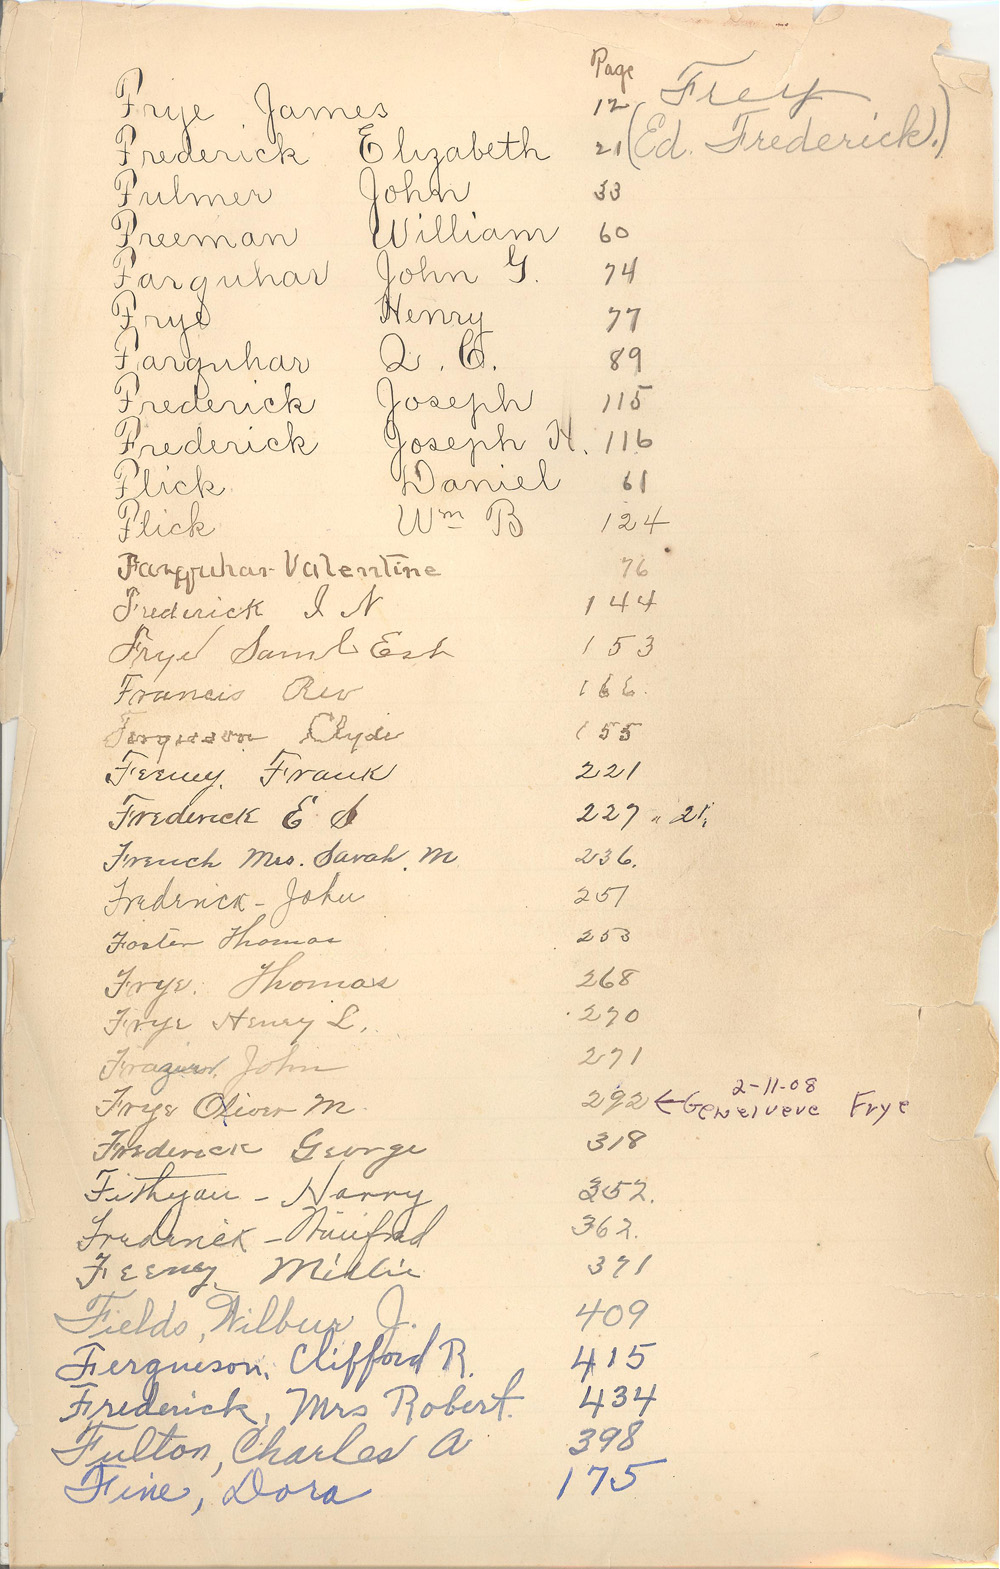 Page
Frye James 12 Frey
Frederick Elizabeth 21 (Ed. Frederick.)
Fulmer John 33
Freeman William 60
Farquhar John G. 74
Frye Henry 77
Farquhar Q. C. 89
Frederick Joseph 115
Frederick Joseph H. 116
Flick Daniel 61
Flick Wm B 124
Farquhar Valentine 76
Frederick I N 144
Frye Saml Est 153
Francis Rev 166.
Ferguson Clyde 155
Feeney, Frank 221
Frederick E S 227 " 21
French Mrs. Sarah. M 236.
Frederick - John 251
Foster Thomas 253
Frye. Thomas 268
Frye Henry L. 270
Frazier, John 271
2-11-08
Frye Oliver M. 292 ← Genevieve Frye
Frederick George 318
Fithyan - Harry 352.
Frederick - Winifred 362.
Feeney, Millie 371
Fields, Wilbur J. 409
Ferguson, Clifford R. 415
Frederick, Mrs Robert. 434
Fulton, Charles A 398
Fine, Dora 175